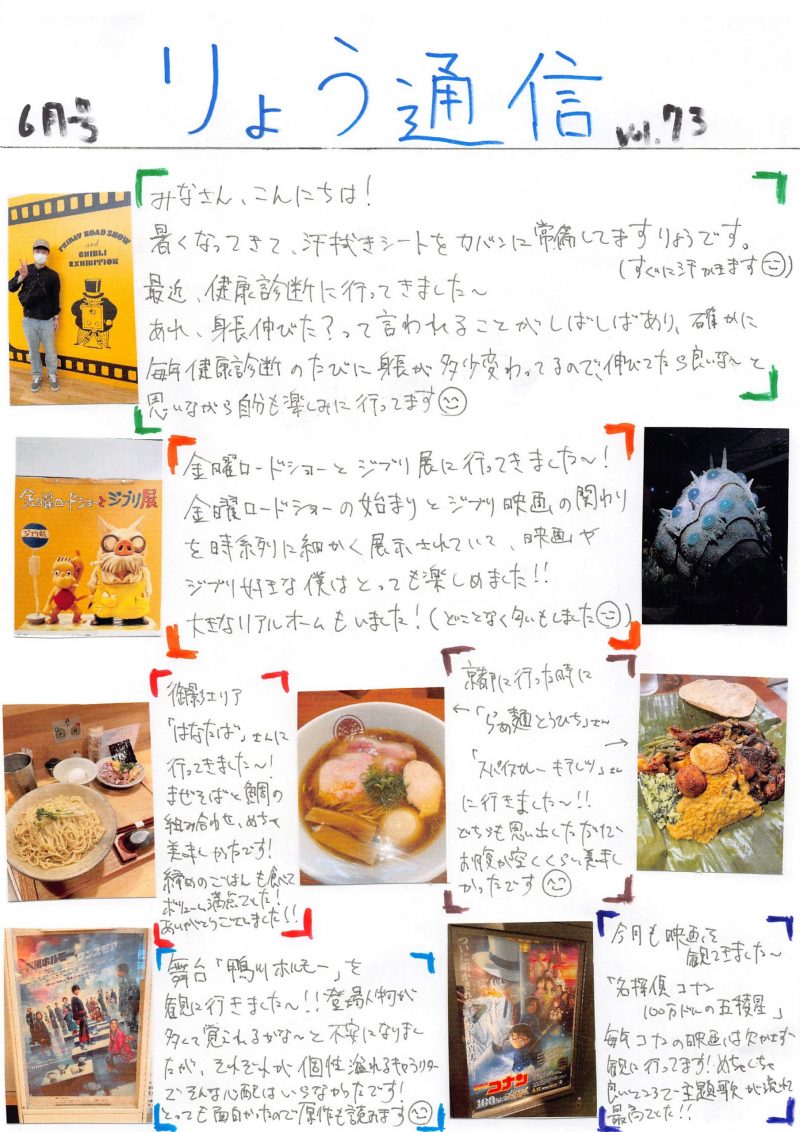 6月号
りょう通信
vol.73
みなさん、こんにちは！
暑くなってきて、汗拭きシートをカバンに常備してますりょうです。
(すぐに汗かきます)
最近、健康診断に行ってきました〜
あれ、身長伸びた？って言われることがしばしばあり、確かに
毎年健康診断のたびに身長が多少変わってるので、伸びてたら良いな〜と
思いながら自分も楽しみに行ってます
FRIDAY ROAD SHOW
and
GHIBLI
EXHIBITION
金曜ロードショーとジブリ展に行ってきました〜！
金曜ロードショーの始まりとジブリ映画の関わり
を時系列に細かく展示されていて、映画や
ジブリ好きな僕はとっても楽しめました!!
大きなリアルオームもいました！(どことなく匂いもしました)
金曜ロードショーとジブリ展
ジブリ展
御影エリア
「はなたば」さんに
行ってきました〜！
まぜそばと鯛の
組み合わせ、めちゃ
美味しかったです！
締めのごはんも食べて
ボリューム満点でした！
ありがとうございました!!
京都に行った時に
←「らぁ麺とうひち」さん
→
「スパイスカレー モクレツ」さん
に行きました〜!!
どちらも思い出しただけで
お腹が空くくらい美味し
かったです
舞台「鴨川ホルモー」を
観に行きました〜!!登場人物が
多くて覚えれるかな〜と不安になりまし
たが、それぞれが個性溢れるキャラクター
でそんな心配はいらなかったです！
とっても面白かったので原作も読みます
今月も映画を
観てきました〜
「名探偵コナン
100万ドルの五稜星」
毎年コナンの映画は欠かさず
観に行ってます！めちゃくちゃ
良いところで主題歌が流れ
最高でした!!
名探偵コナン